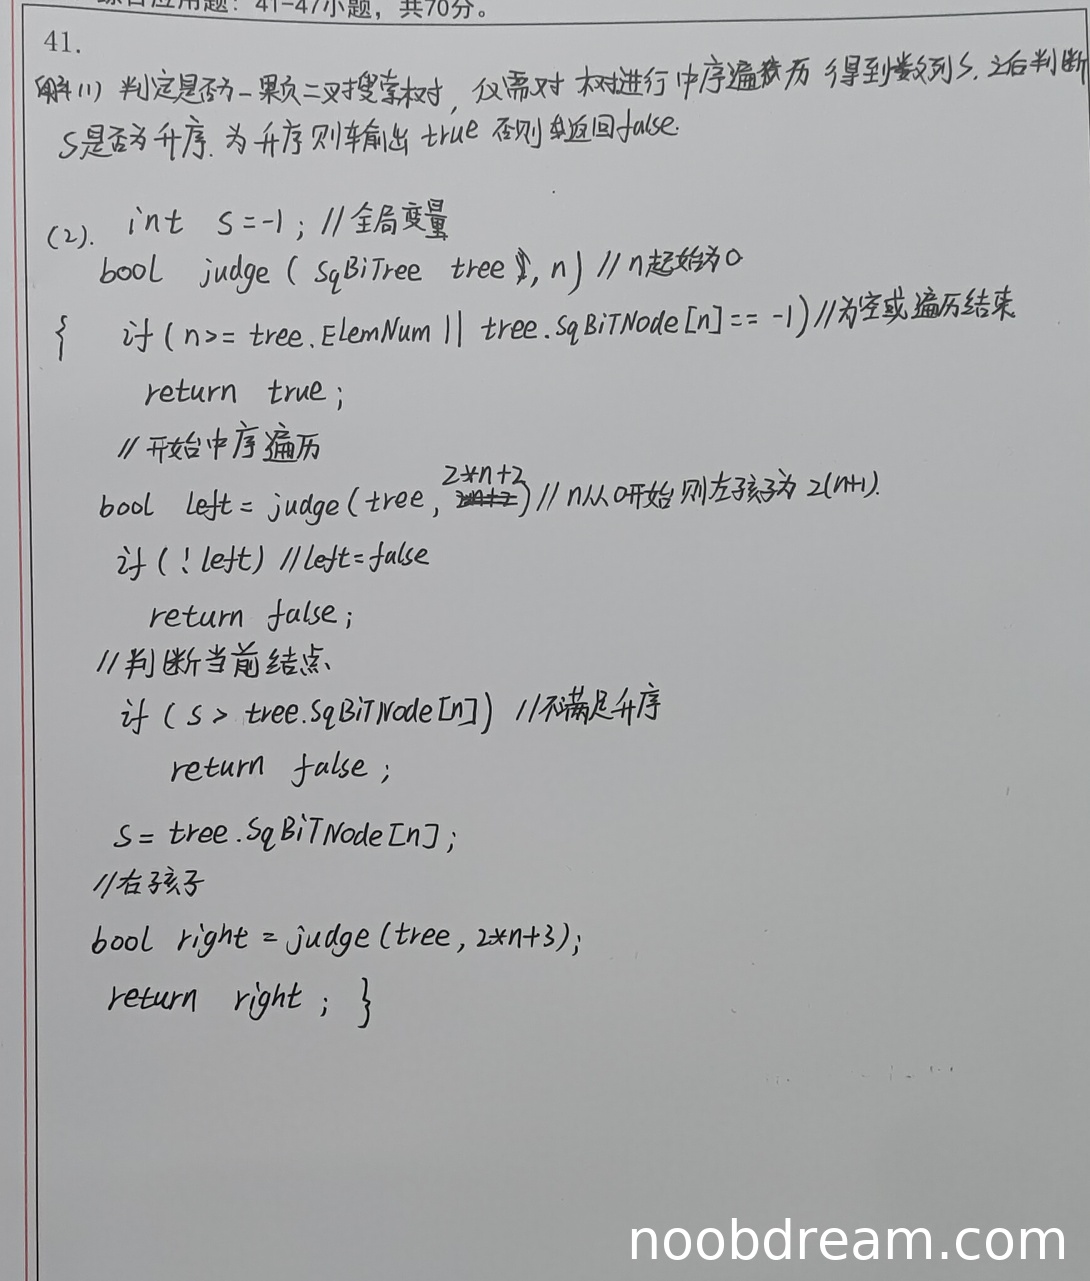 综合应用题：41-47小题，共70分。
41.
解(1) 判定是否为一颗二叉搜索树，仅需对 树进行中序遍历 得到数列S，之后判断
S是否为升序. 为升序则输出 true 否则返回false.
(2). int s=-1; //全局变量
bool judge ( SqBiTree tree, n) // n起始为0
{ if ( n>= tree.ElemNum || tree.SqBiTNode[n]== -1) //为空或遍历结束
return true;
//开始中序遍历
bool left = judge(tree, 2*n+2) // n从0开始 则左孩子为 2(n+1).
if ( ! left) //left=false
return false;
//判断当前结点
if ( s > tree.SqBiTNode[n]) //不满足升序
return false ;
s= tree.SqBiTNode[n];
//右孩子
bool right = judge(tree, 2*n+3);
return right ; }
noobdream.com